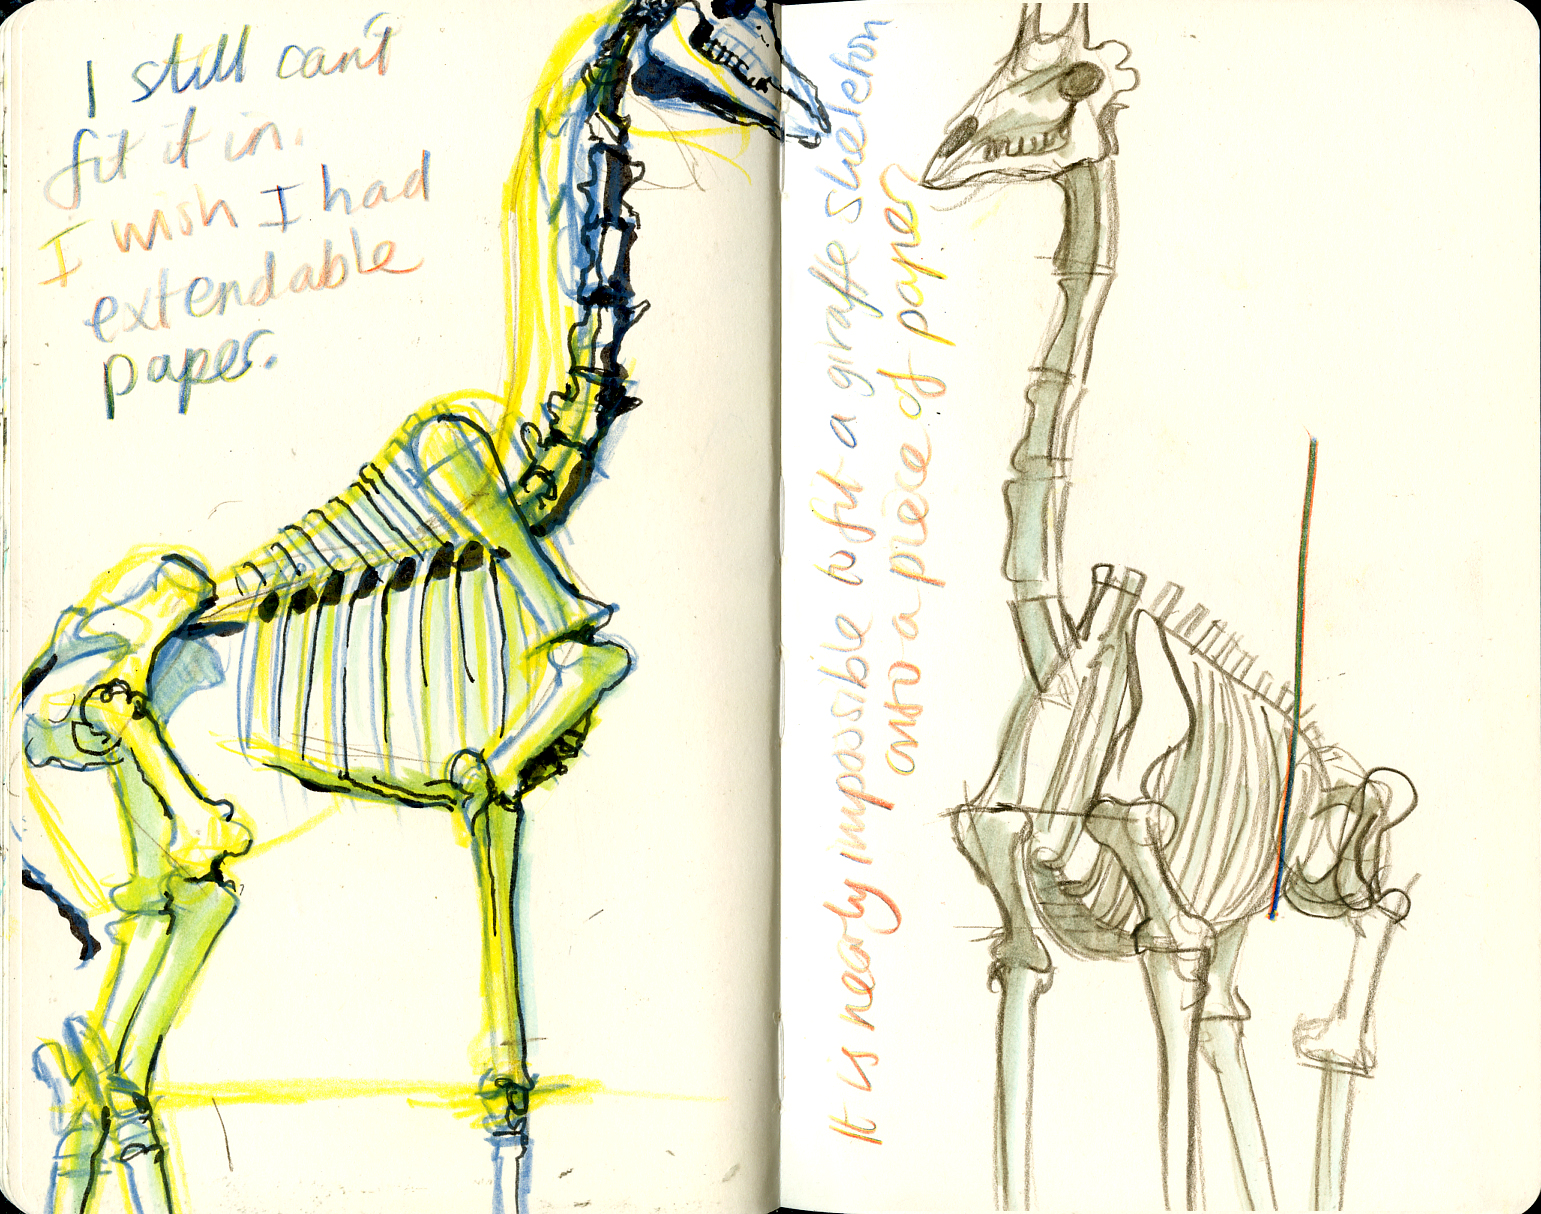 I still can't
fit it in.
I wish I had
extendable
paper.
It is nearly impossible to fit a giraffe skeleton
onto a piece of paper